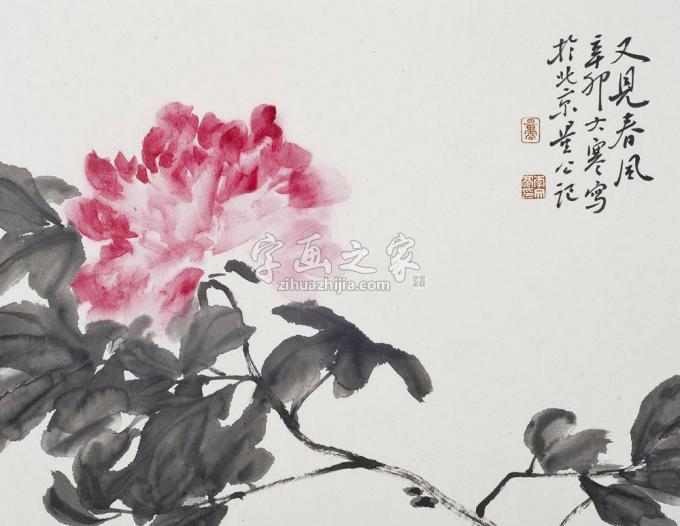 又見春风
辛卯大寒写
於北京景公记
字画之家
zihuazhijia.com